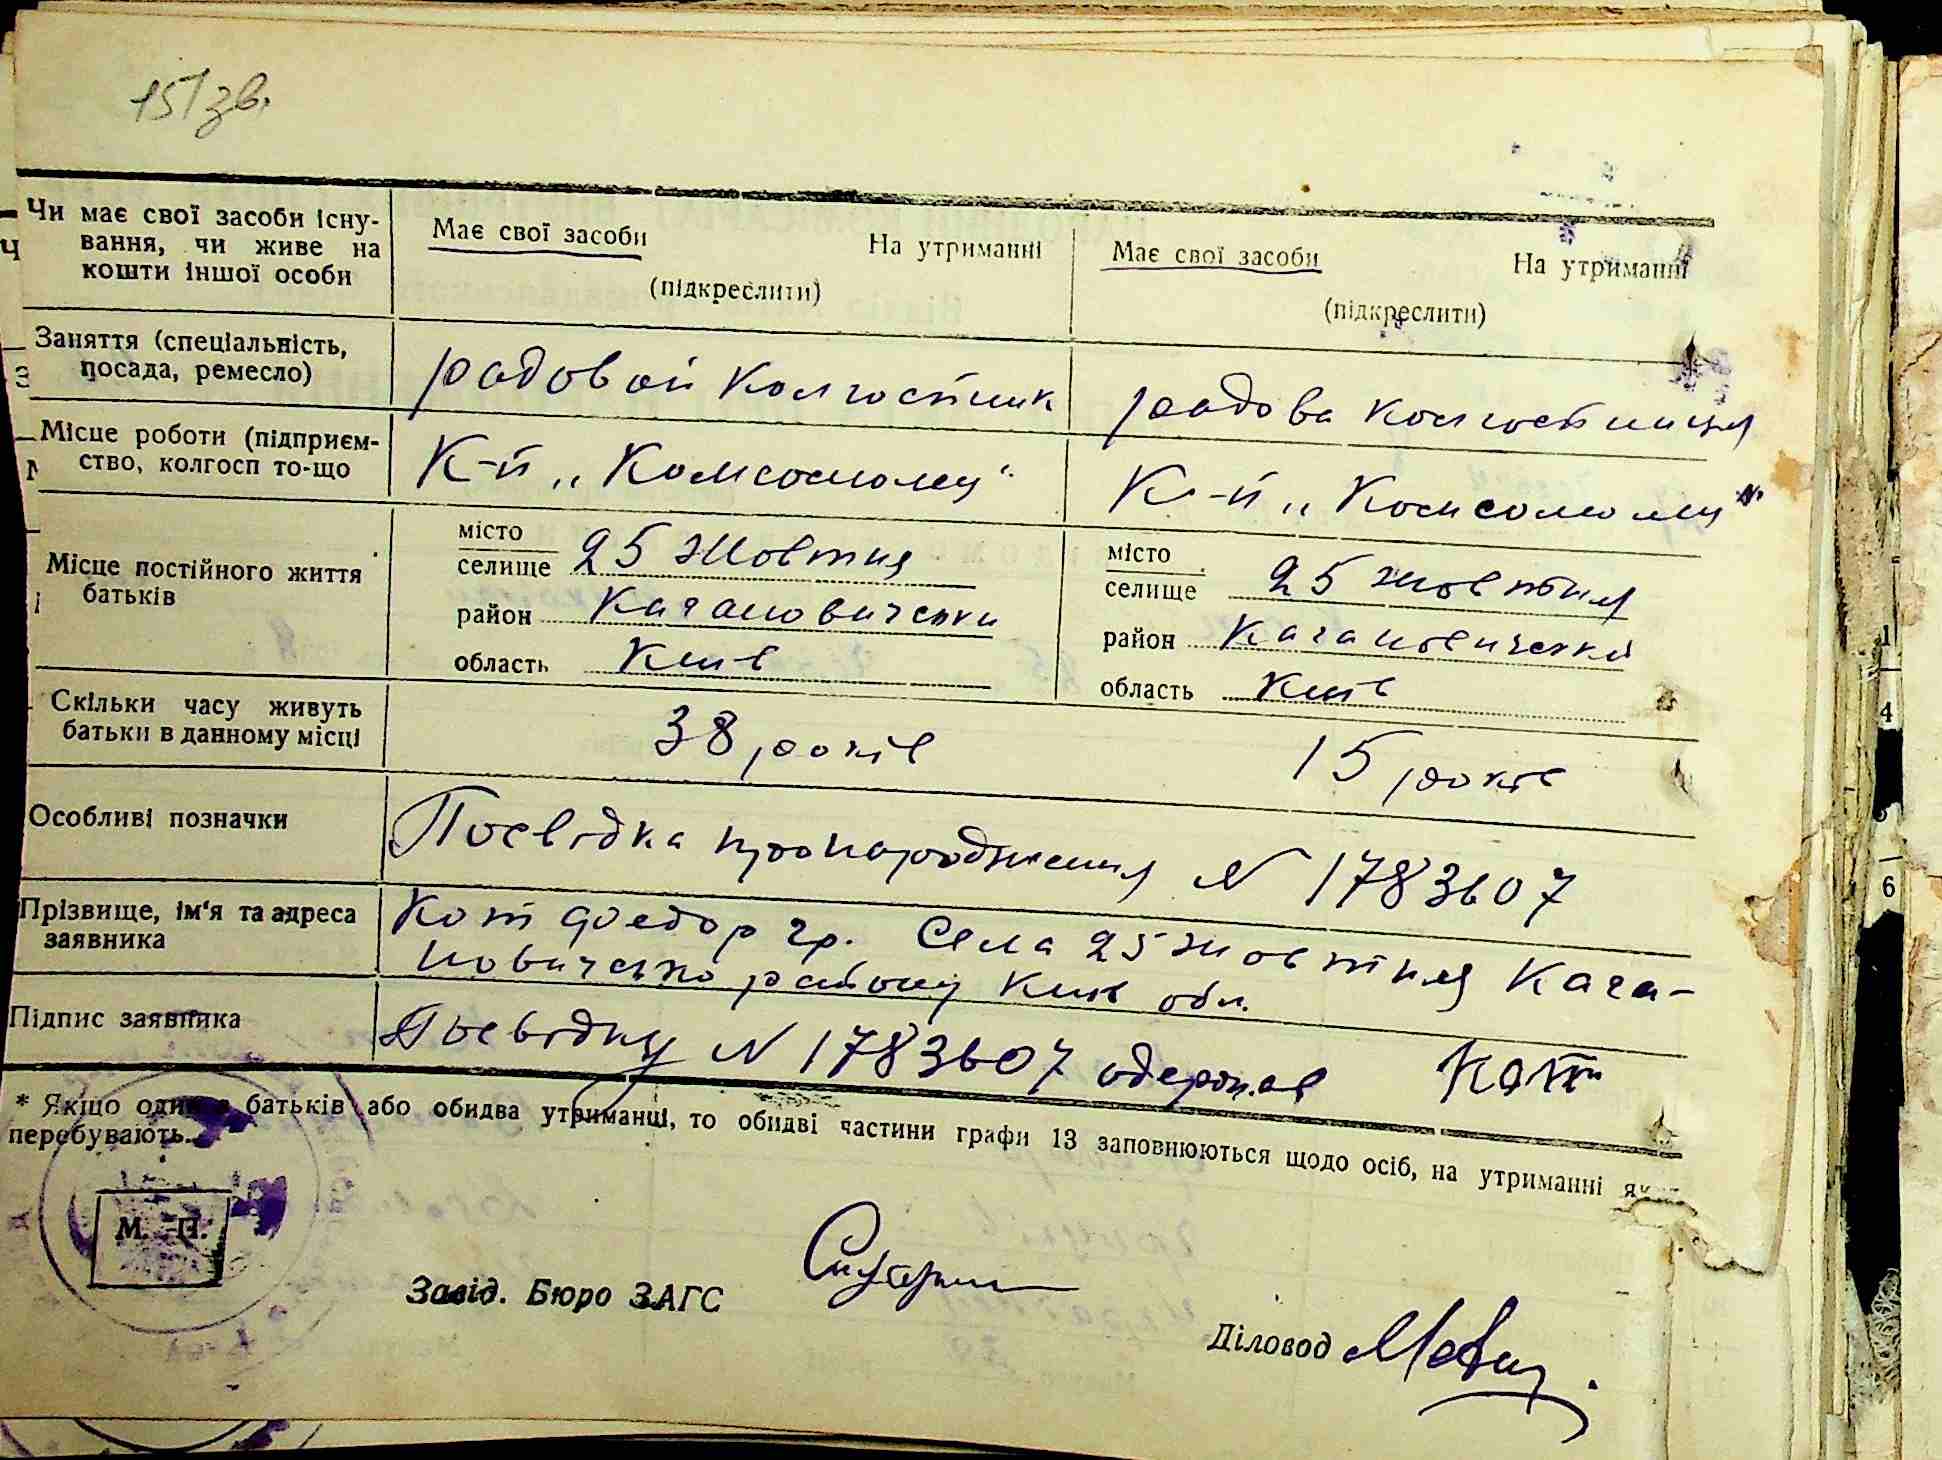 151 зв.
Чи має свої засоби існу-
вання, чи живе на
кошти іншої особи
Має свої засоби На утриманні
(підкреслити)
Має свої засоби На утриманні
(підкреслити)
Заняття (спеціальність,
посада, ремесло)
радовой колгостник
радова колгостниця
Місце роботи (підприєм-
ство, колгосп то-що
К-п „Комсомолец“
К-п „Комсомолец“
Місце постійного життя
батьків
місто
селище 25 Жовтня
район Кагановичськи
область Київ
місто
селище 25 Жовтня
район Кагановичский
область Київ
Скільки часу живуть
батьки в данному місці
38 років
15 років
Особливі позначки
Посвідка про народження N 1783607
Прізвище, ім'я та адреса
заявника
Кот Федор гр. Села 25 Жовтня Кага-
новичсько району Київ обл.
Підпис заявника
Посвідку N 1783607 одержав Кот
* Якщо один з батьків або обидва утриманці, то обидві частини графи 13 заповнюються щодо осіб, на утриманні як
перебувають.
М. П.
Завід. Бюро ЗАГС
Діловод